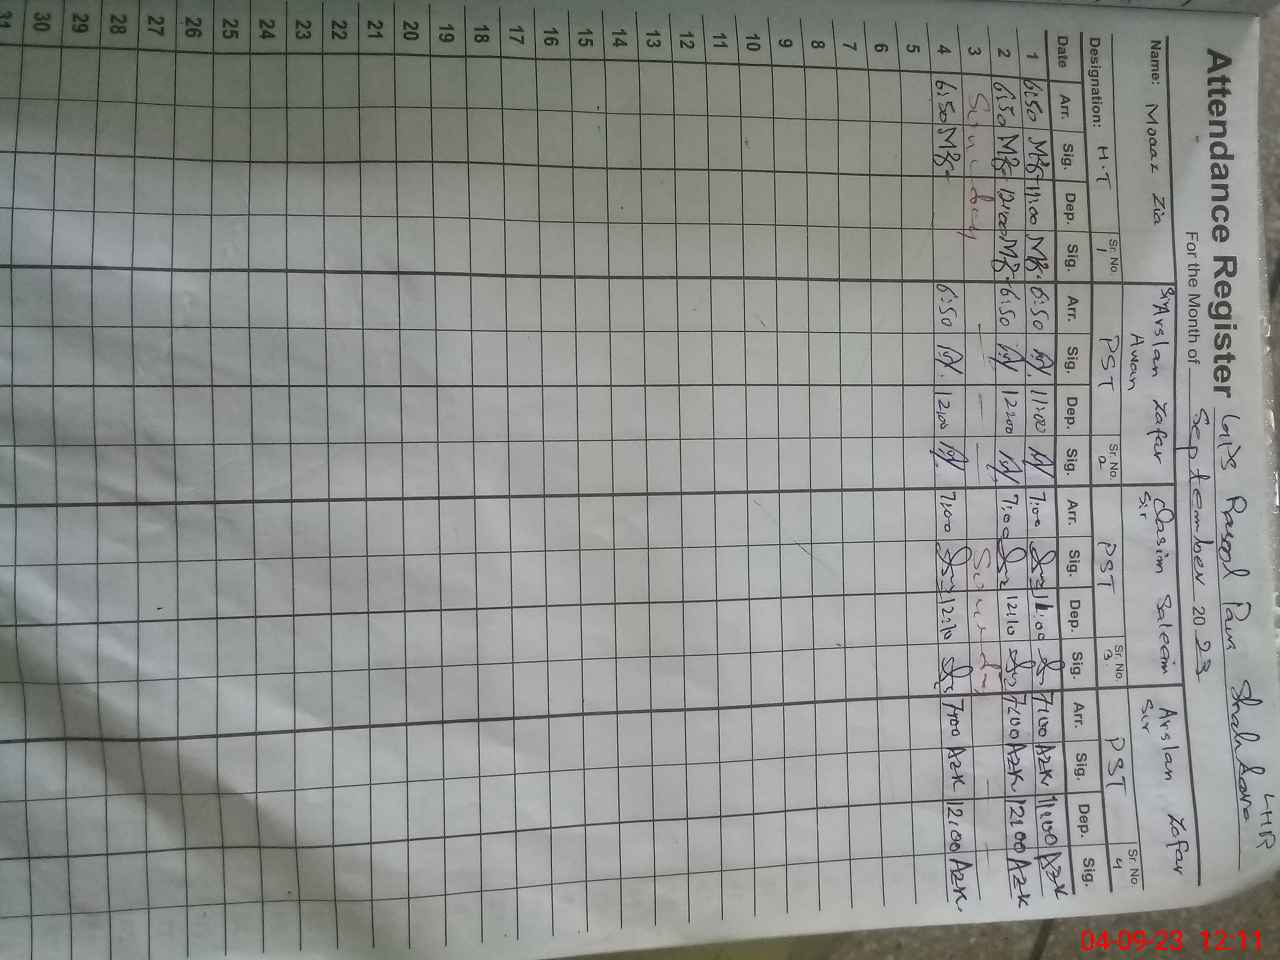 LHR
Attendance Register G/P/S Rasool Pura Shahdara
For the Month of September 2023
Name: Moaaz Zia Sir Arslan Zafar Awan Qasim Saleem Sir Arslan Zafar Sir
Designation: H.T Sr. No. 1 PST Sr. No. 2 PST Sr. No. 3 PST Sr. No. 4
Date Arr. Sig. Dep. Sig. Arr. Sig. Dep. Sig. Arr. Sig. Dep. Sig. Arr. Sig. Dep. Sig.
1 6:50 11:00 6:50 11:00 7:00 11:00 7:00 AZK 11:00 AZK
2 6:50 12:00 6:50 12:00 7:00 12:10 7:00 AZK 12:00 AZK
3 Sunday Sunday
4 6:50 6:50 12:00 7:00 12:10 7:00 AZK 12:00 AZK
5
6
7
8
9
10
11
12
13
14
15
16
17
18
19
20
21
22
23
24
25
26
27
28
29
30
31
04-09-23 12:11